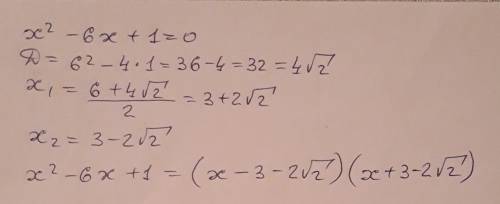 x² - 6x + 1 = 0
D = 6² - 4 · 1 = 36 - 4 = 32 = 4√2
x₁ = (6 + 4√2)/2 = 3 + 2√2
x₂ = 3 - 2√2
x² - 6x + 1 = (x - 3 - 2√2)(x + 3 - 2√2)